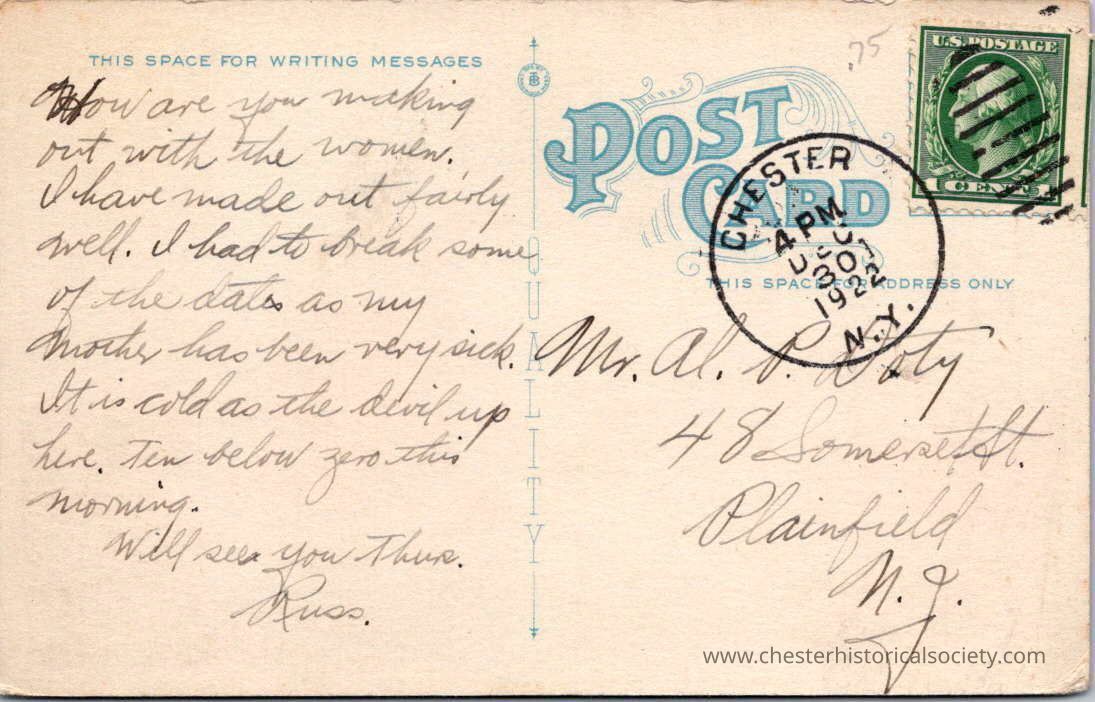 THIS SPACE FOR WRITING MESSAGES
How are you making
out with the women.
I have made out fairly
well. I had to break some
of the dates as my
Mother has been very sick.
It is cold as the devil up
here. Ten below zero this
morning.
Will see you Thurs.
Russ.
QUALITY
.75
POST
CARD
U.S. POSTAGE
1 CENT 1
CHESTER
4 PM
DEC
30
1922
N.Y.
THIS SPACE FOR ADDRESS ONLY
Mr. Al. P. Doty
48 Somerset St.
Plainfield
N. J.
www.chesterhistoricalsociety.com